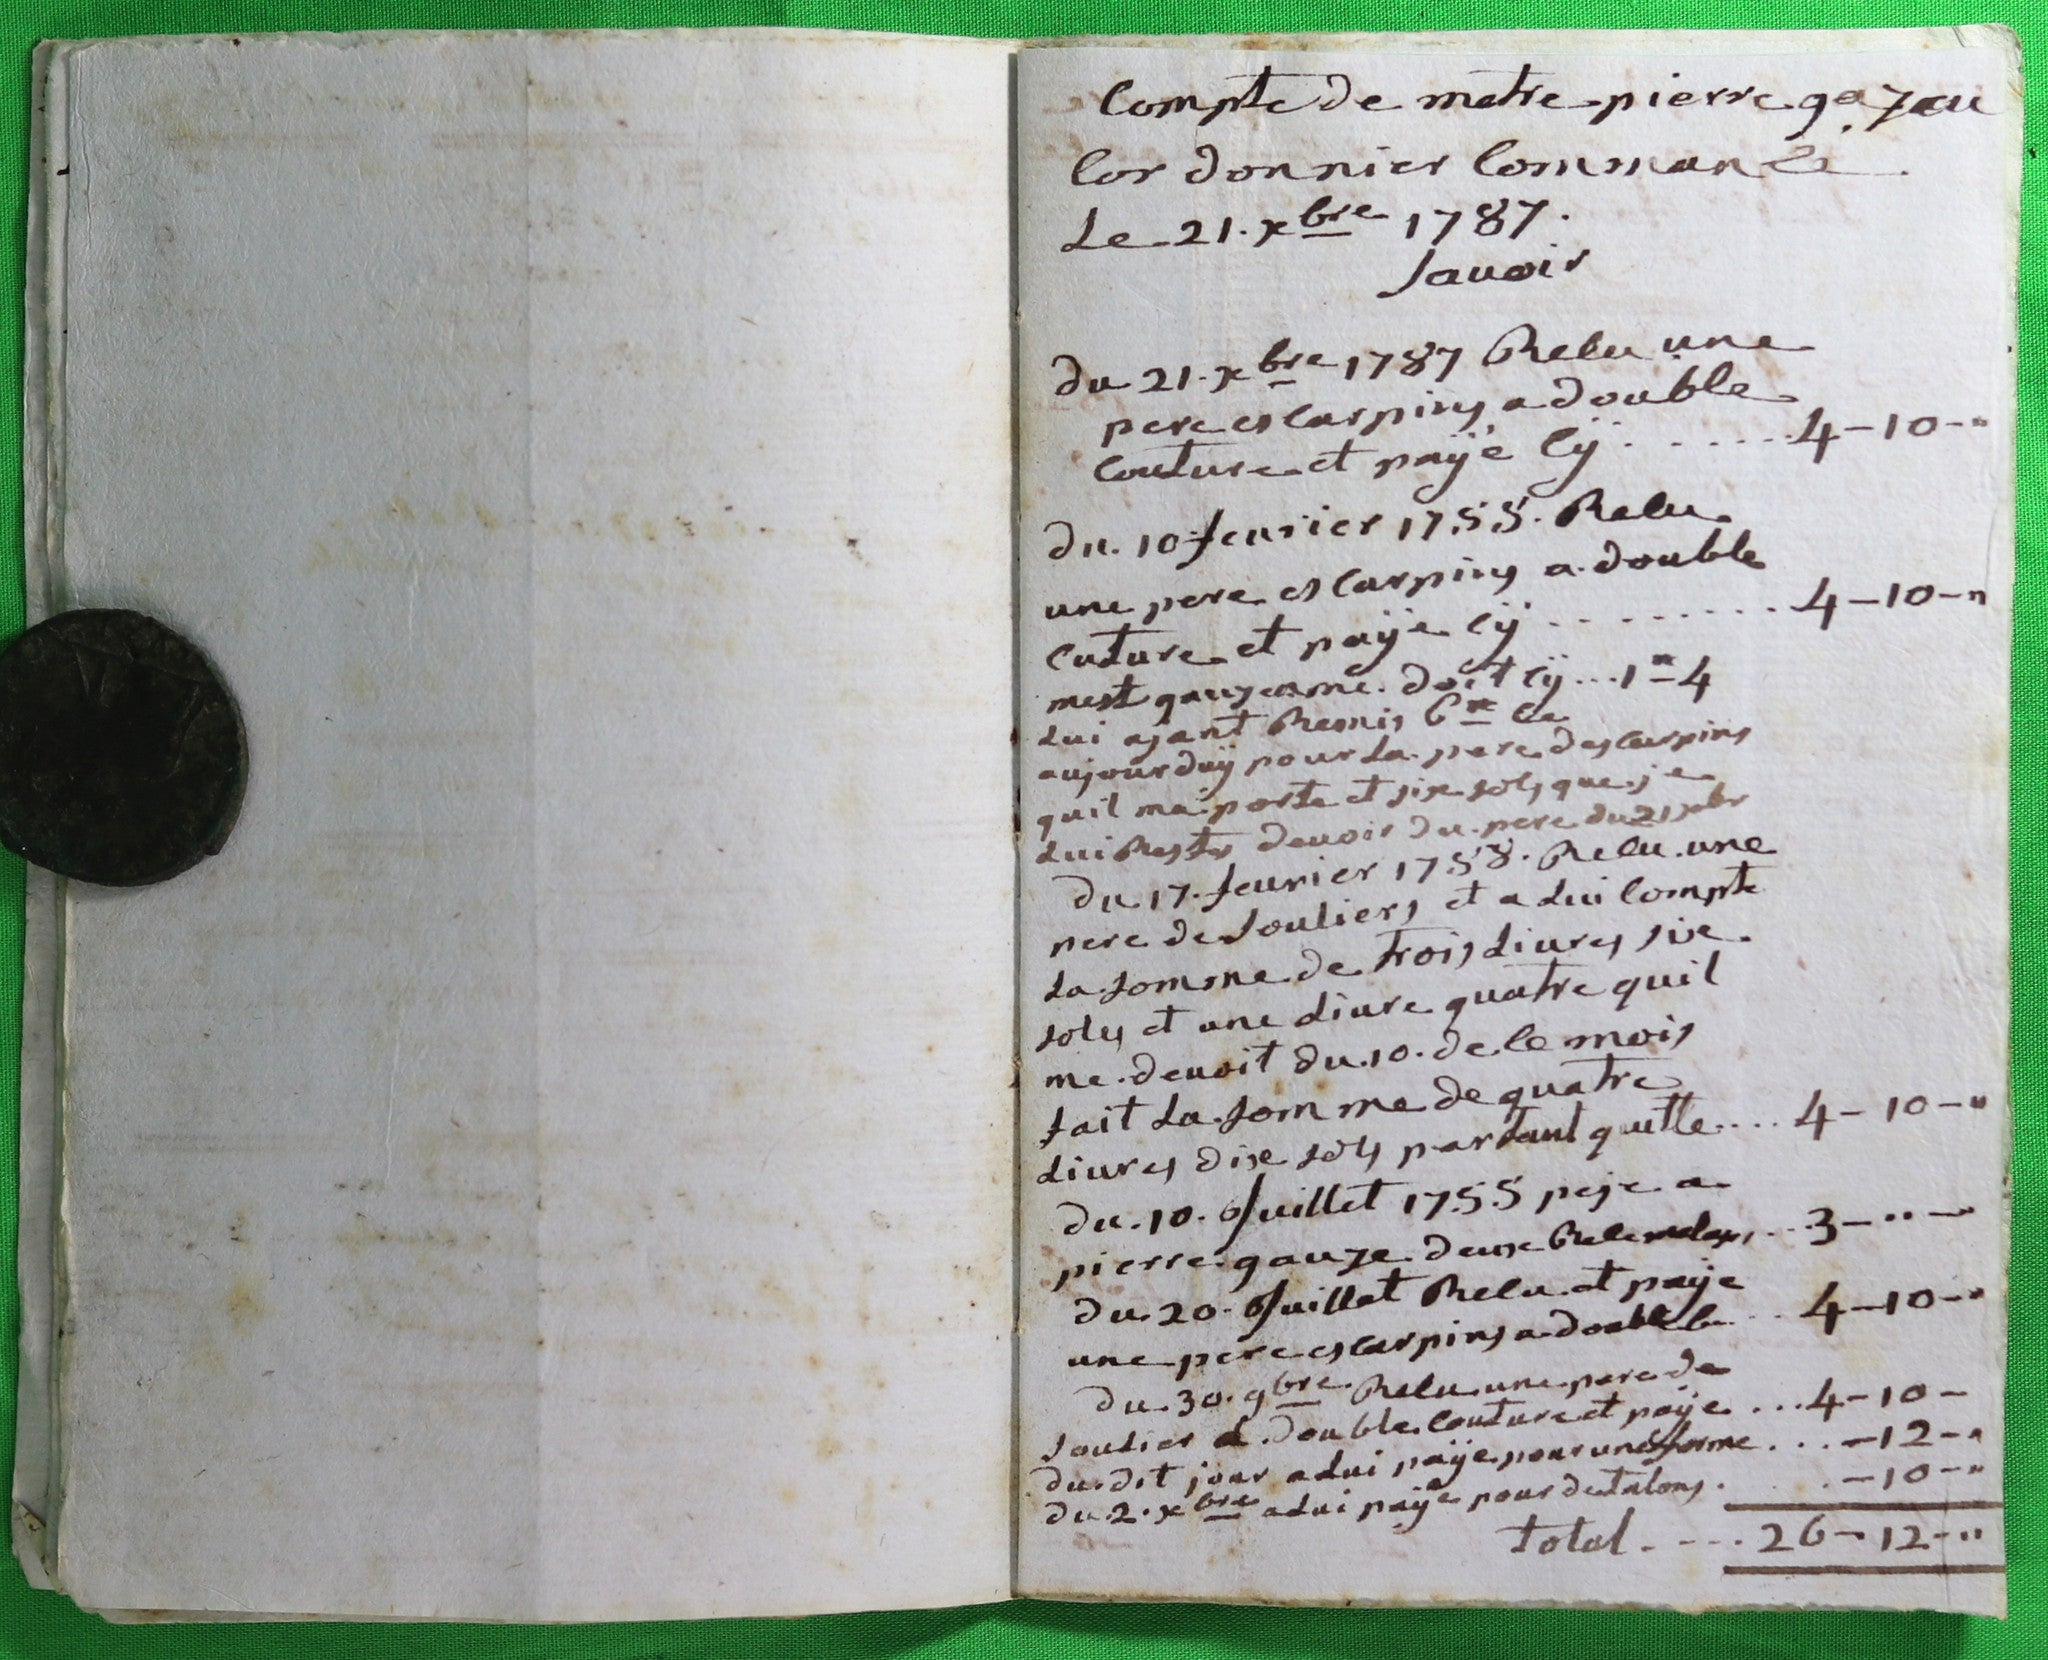 Compte de metre pierre gauzau
Cordonnier Commancé
Le 21. xbre 1787.
Savoir
du 21. xbre 1787 Recu une
pere escarpins a double
Couture et payé Cÿ ...... 4-10-"
du. 10 fevrier 1788. Recu
une pere escarpins a double
Cuture et payé Cÿ ........ 4-10-"
mest doit Cÿ ... 1-4
Lui ajant Remis 6 Ce
aujourduÿ pour La pere descarpins
quil ma porte et sixe sols que je
Lui Restes devoir du pere du 21 xbr
du 17. fevrier 1788. Recu une
pere de Souliers et a Lui Compte
La Somme de trois Livres sixe
sols et une Livre quatre quil
me devoit du. 10. de Ce mois
fait La Somme de quatre
Livres dixe sols partant quitte .... 4-10-"
du. 10. Juillet 1788 peje a
pierre gauze deuxe ... 3-"-"
du 20. Juillet Recu et paÿe
une pere escarpins a double C ... 4-10-"
du 30. 9bre Recu une pere de
Soulier a double Couture et paÿe ... 4-10-
du dit jour a Lui paÿe pour une forme ... -12-"
du 2. xbre a Lui paÿe pour de talons . . -10-"
total .... 26-12-"